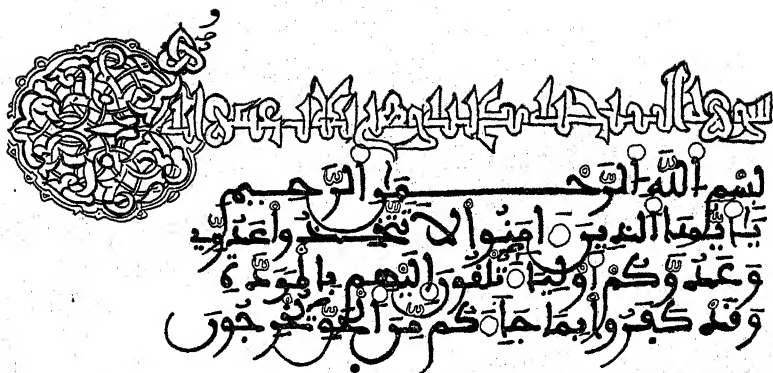 سورة وهي
بسم الله الرحمن الرحيم
يأيها الذين ءامنوا لا تتخذوا عدوي
وعدوكم أولياء تلقون إليهم بالمودة
وقد كفروا بما جاءكم من الحق يخرجون